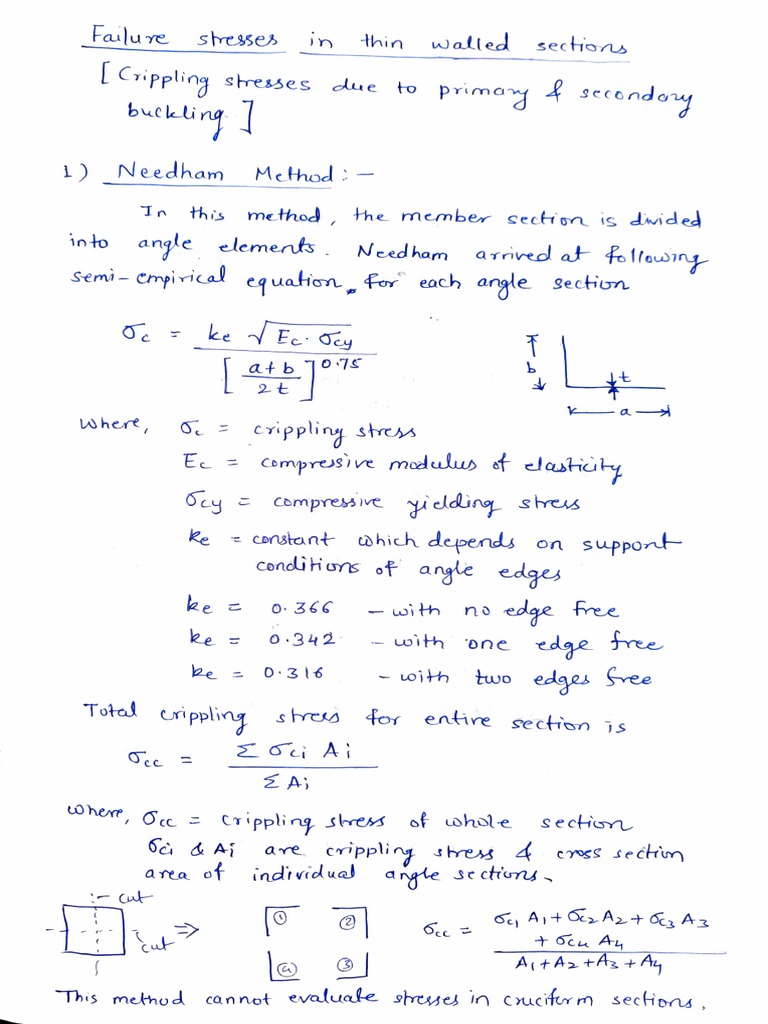 Failure stresses in thin walled sections
[Crippling stresses due to primary & secondary
buckling]
1) Needham Method :-
In this method, the member section is divided
into angle elements. Needham arrived at following
semi-empirical equation, for each angle section
σc = ke √Ec. σcy / [a+b / 2t]^0.75
b
t
a
Where, σc = crippling stress
Ec = compressive modulus of elasticity
σcy = compressive yielding stress
ke = constant which depends on support
conditions of angle edges
ke = 0.366 - with no edge free
ke = 0.342 - with one edge free
ke = 0.316 - with two edges free
Total crippling stress for entire section is
σcc = Σ σci Ai / Σ Ai
where, σcc = crippling stress of whole section
σci & Ai are crippling stress & cross section
area of individual angle sections.
cut
cut
⇒
1 2
4 3
σcc = σc1 A1 + σc2 A2 + σc3 A3 + σc4 A4 / A1 + A2 + A3 + A4
This method cannot evaluate stresses in cruciform sections.